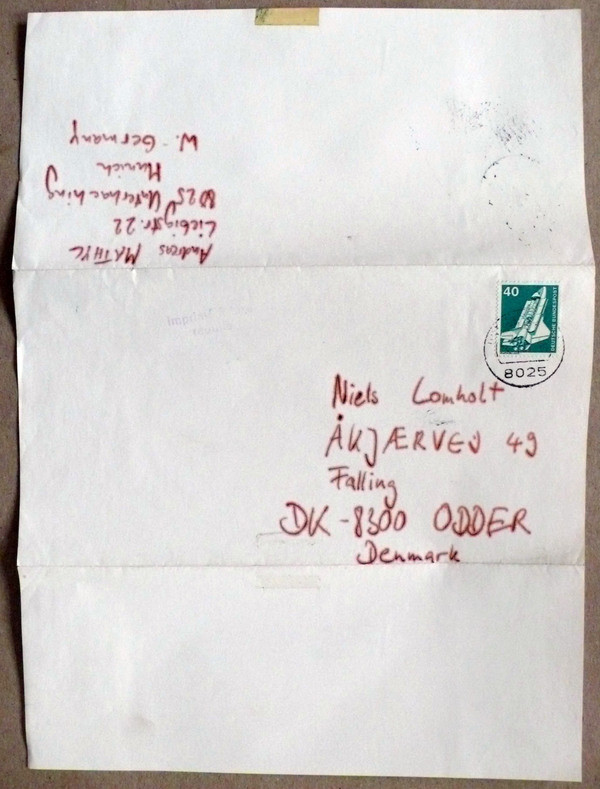 Andreas MATHYL
Liebigstr. 22
8025 Unterhaching
Munich
W. Germany
40
DEUTSCHE BUNDESPOST
8025
Niels Lomholt
ÅKJÆRVEJ 49
Falling
DK-8300 ODDER
Denmark